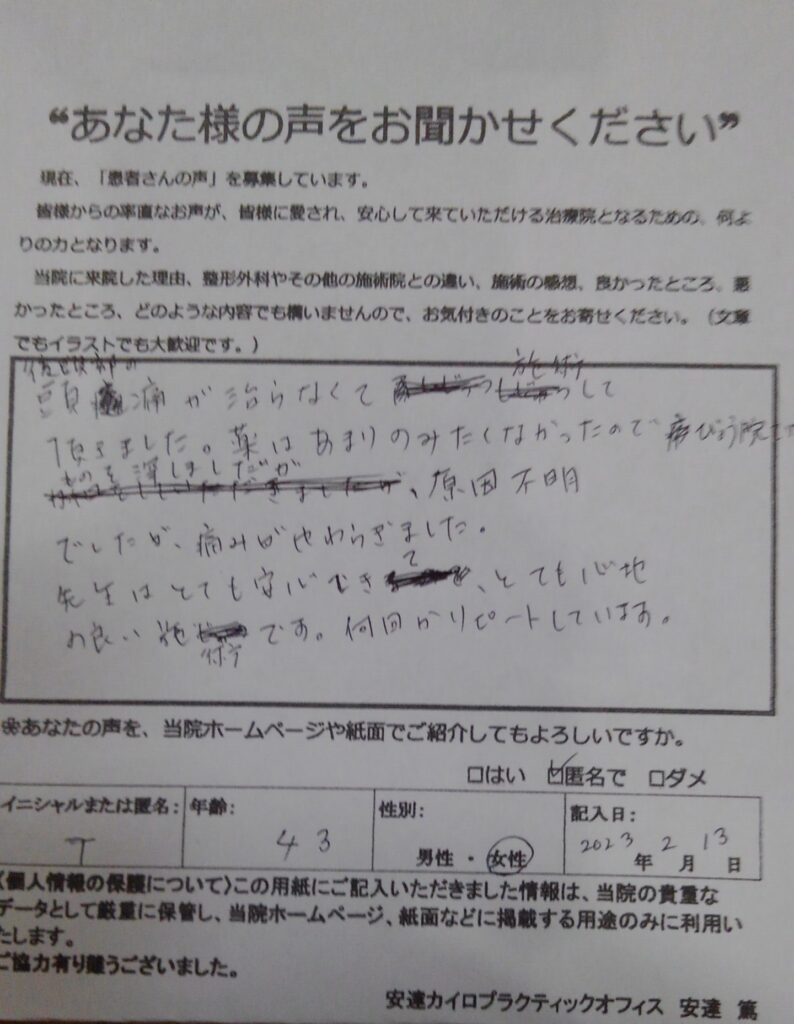 “あなた様の声をお聞かせください”
現在、「患者さんの声」を募集しています。
皆様からの率直なお声が、皆様に愛され、安心して来ていただける治療院となるための、何よ
りの力となります。
当院に来院した理由、整形外科やその他の施術院との違い、施術の感想、良かったところ、悪
かったところ、どのような内容でも構いませんので、お気付きのことをお寄せください。（文章
でもイラストでも大歓迎です。）
後頭部の
頭痛が治らなくて 施術して
頂きました。薬はあまりのみたくなかったので
、原因不明
でしたが、痛みがやわらぎました。
先生はとても安心できて、とても心地
の良い施術です。何回かリピートしています。
※あなたの声を、当院ホームページや紙面でご紹介してもよろしいですか。
□はい ☑匿名で □ダメ
イニシャルまたは匿名: T 年齢: 43 性別: 男性・女性 記入日: 2023年 2月 13日
〈個人情報の保護について〉この用紙にご記入いただきました情報は、当院の貴重な
データとして厳重に保管し、当院ホームページ、紙面などに掲載する用途のみに利用い
たします。
ご協力有り難うございました。
安達カイロプラクティックオフィス 安達 篤